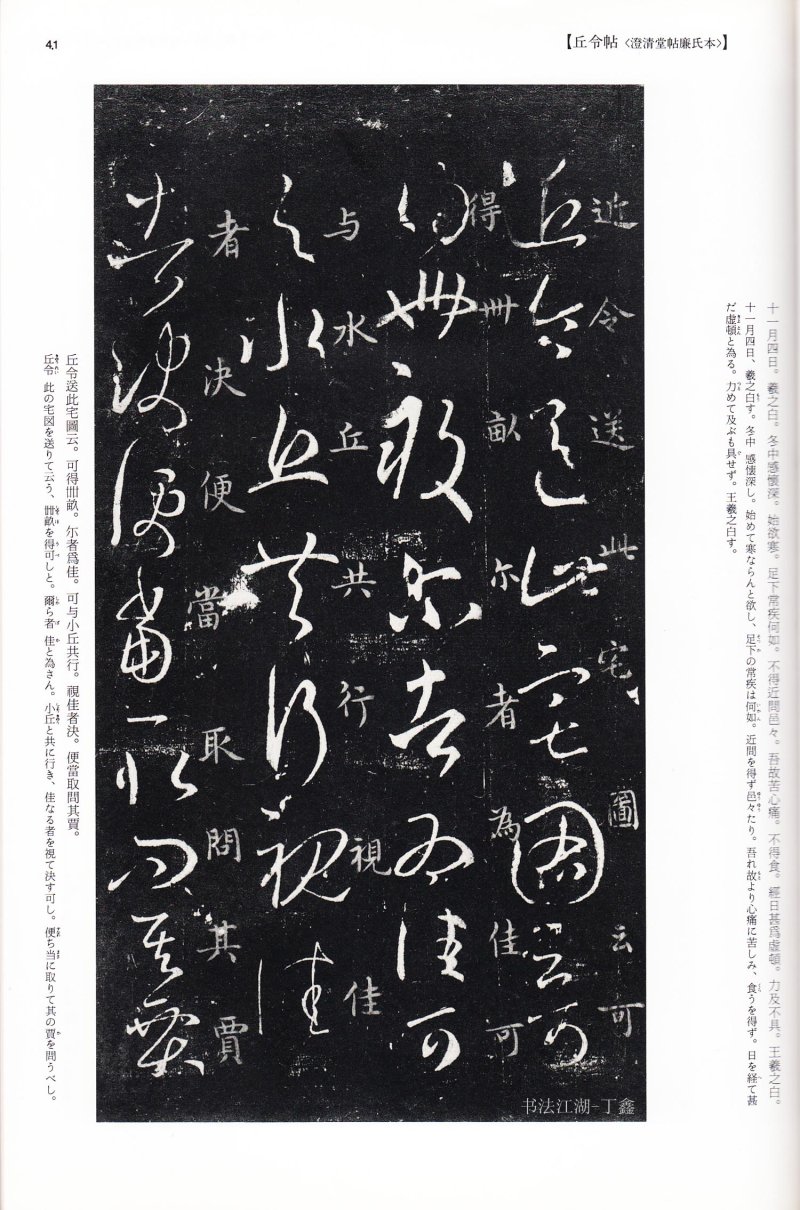 【丘令帖〈澄清堂帖廉氏本〉】
4.1
十一月四日。羲之白。冬中感懐深。始欲寒。足下常疾何如。不得近問邑々。吾故苦心痛。不得食。經日甚爲虛頓。力及不具。王羲之白。
十一月四日、羲之白す。冬中 感懐深し。始めて寒ならんと欲し、足下の常疾は何如。近問を得ず邑々たり。吾れ故より心痛に苦しみ、食うを得ず。日を経て甚
だ虚頓と為る。力めて及ぶも具せず。王羲之白す。
近令送此宅圖云可
丘令送此宅圖云可
得卌畝尓者為佳可
得卌畝尓者為佳可
与水丘共行視佳
与小丘共行視佳
者決便當取問其賈
者決便當取問其賈
丘令送此宅圖云。可得卌畝。尓者爲佳。可与小丘共行。視佳者決。便當取問其賈。
丘令 此の宅図を送りて云う、卌畝を得可しと。爾ら者 佳と為さん。小丘と共に行き、佳なる者を視て決す可し。便ち当に取りて其の賈を問うべし。
书法江湖-丁鑫